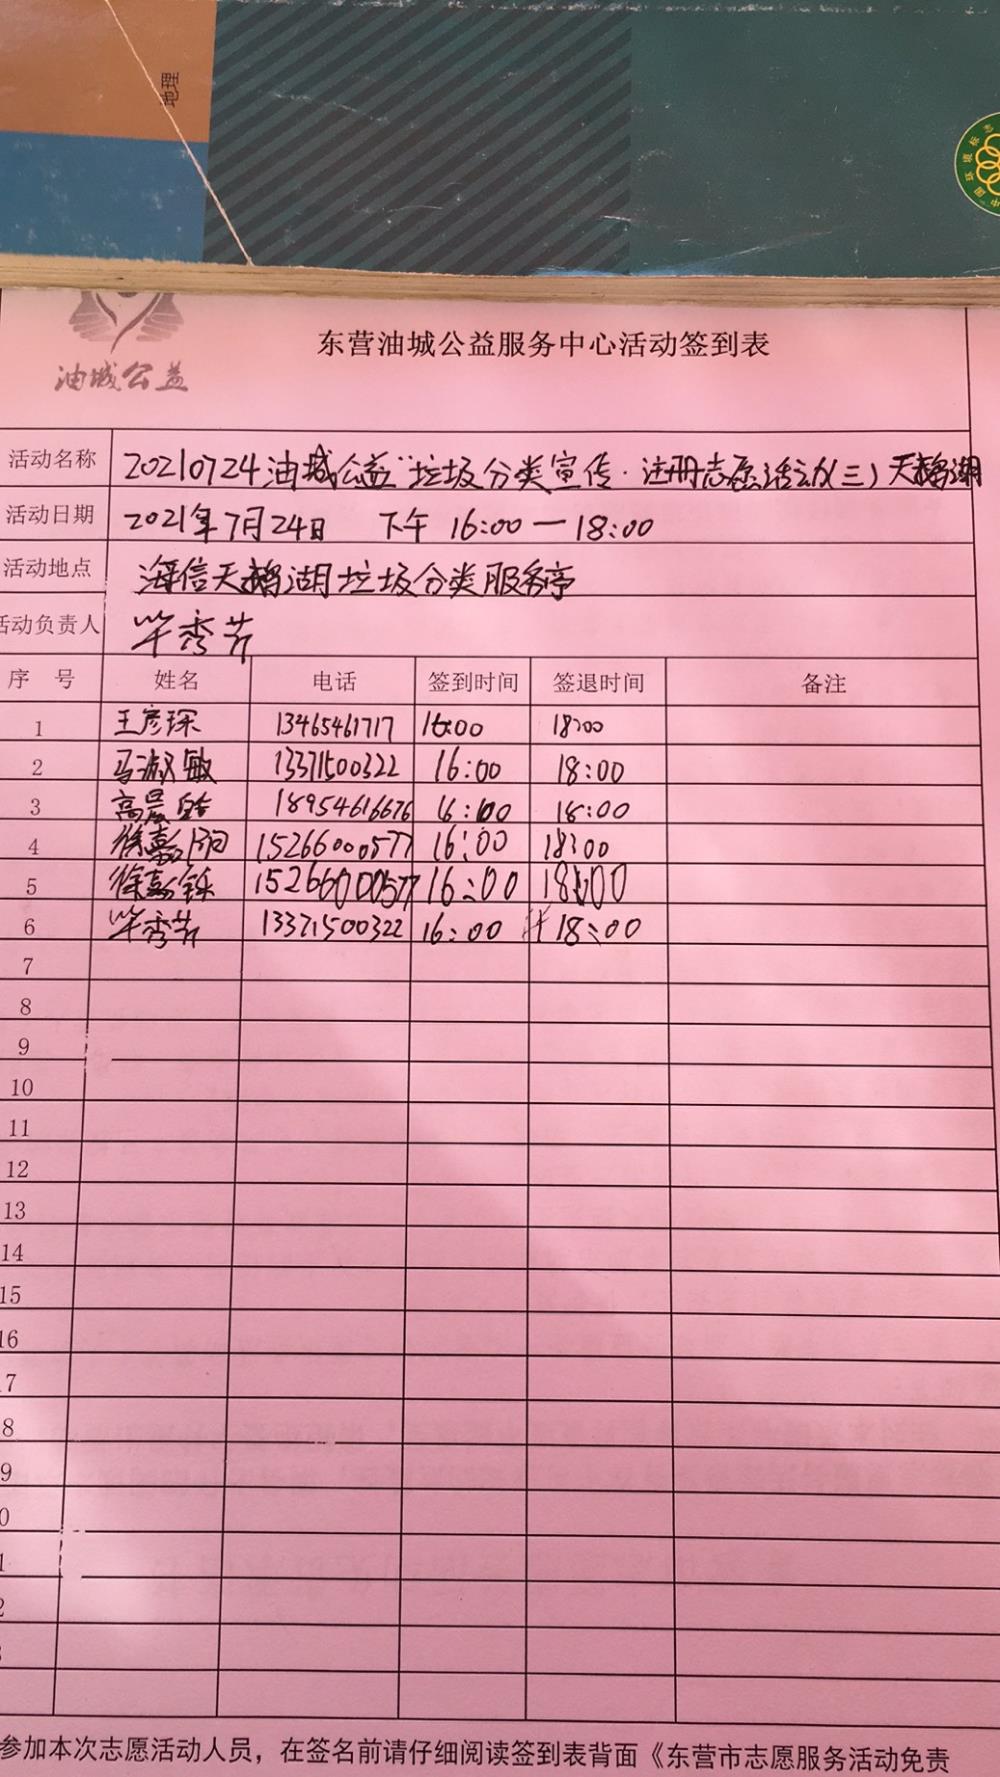 地理
中国环境标
油城公益
东营油城公益服务中心活动签到表
活动名称 20210724油城公益"垃圾分类宣传·注册志愿活动(三)天鹅湖
活动日期 2021年7月24日 下午 16:00—18:00
活动地点 海信天鹅湖垃圾分类服务亭
活动负责人 毕秀芹
序号 姓名 电话 签到时间 签退时间 备注
1 王彦琛 13465461717 16:00 18:00
2 马淑敏 13371500322 16:00 18:00
3 高晨皓 18954616676 16:00 18:00
4 徐嘉 15266000577 16:00 18:00
5 徐嘉铄 15266000577 16:00 18:00
6 毕秀芹 13371500322 16:00 18:00
7
8
9
10
11
12
13
14
15
16
7
8
9
0
1
2
参加本次志愿活动人员，在签名前请仔细阅读签到表背面《东营市志愿服务活动免责